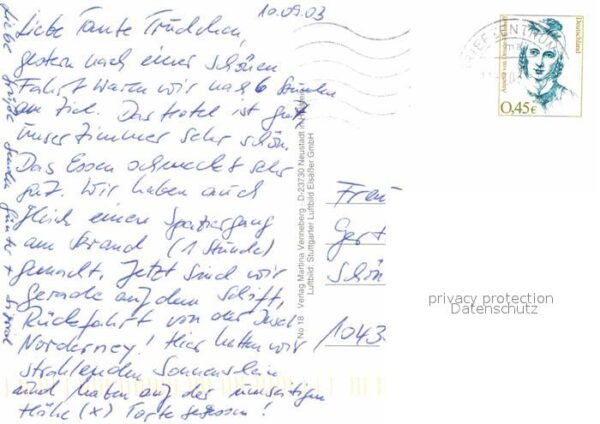 10.09.03
Liebe Tante Trudchen,
gestern nach einer schönen
Fahrt waren wir nach 6 Stunden
am Ziel. Das Hotel ist gut,
unser Zimmer sehr schön.
Das Essen schmeckt sehr
gut. Wir haben auch
gleich einen Spaziergang
am Strand (1 Stunde)
gemacht. Jetzt sind wir
gerade auf dem Schiff,
Rückfahrt von der Insel
Norderney! Hier hatten wir
strahlenden Sonnenschein
und haben auf der
Höhe (x) Torte gegessen!
Liebe Grüße senden Günter +
No 18 Verlag Martina Venneberg D-23730 Neustadt in
Luftbild: Stuttgarter Luftbild Elsäßer GmbH
BRIEFZENTRUM
Deutschland
0,45€
Frau
Gert
Schön
1043
privacy protection
Datenschutz